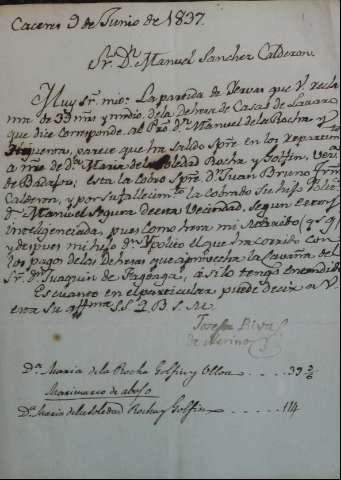 Caceres 9 de Junio de 1837.
Sr. Dn. Manuel Sanchez Calderon
Muy Sr. mio: La partida de Yervas que V. recla
ma de 39 mrs y medio, de la dehesa de Casas de
que dice corresponde al Pro. Dn. Manuel de la Rocha y
Figueroa, parece que ha salido spre. en los repartim
a nre. de Da. Maria de la Soledad Rocha y Golfin, 
de Badajoz; esta la cobro spre. Dn. Juan Bruno
Calderon, y por su fallecimto. la cobrado su hijo
Dn. Manuel Segura de esta Vecindad, segun estoy
inteligenciada, pues como hera mi Marido (q. s. g.)
y despues mi hijo Dn. Ypolito el que ha corrido con
los pagos de las Dehesas que aprovecha la Cavaña del
Sr. Dn. Juaquin de Fagoaga, asi lo tengo entendido
Es cuanto en el particular puede decir a V.
esta su affma. S. S. Q. B. S. M.
Josefa Riva
de Merino
Da. Maria de la Rocha Golfin y Ulloa . . . . 39
Da. Maria de la Soledad Rocha y Golfin . . . . . 114